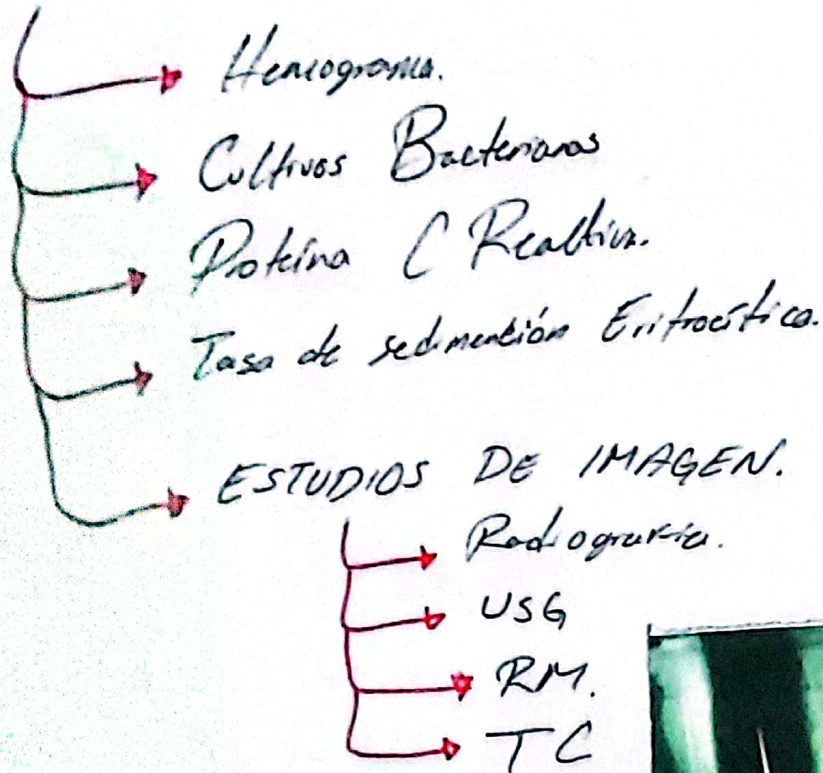 Hemograma.
Cultivos Bacterianos
Proteína C Reactiva.
Tasa de sedimentión Eritrocítica.
ESTUDIOS DE IMAGEN.
Radiografía.
USG
RM.
TC